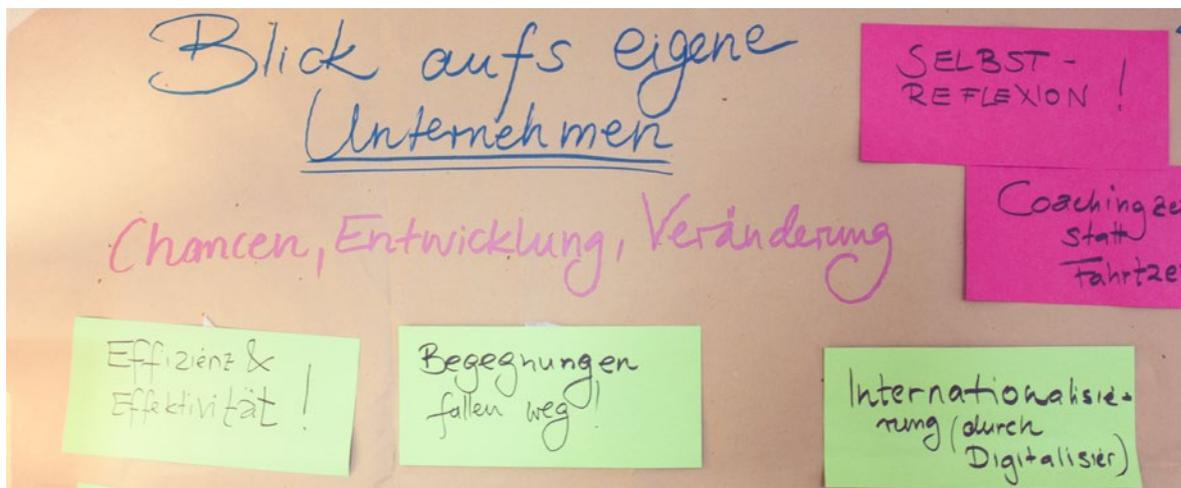 Blick aufs eigene
Unternehmen
Chancen, Entwicklung, Veränderung
SELBST-
REFLEXION !
Coachingze
statt
Fahrtze
Effizienz &
Effektivität !
Begegnungen
fallen weg !
Internationalisie-
rung (durch
Digitalisier)